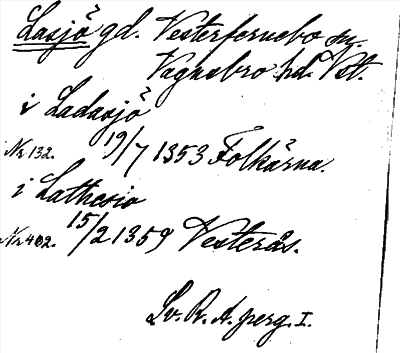 Lasjö gd. Vesterfernebo sn.
Vagnsbro hd. Vst.
i Ladasjö
Nr 132. 19/7 1353 Folkärna.
i Lathesio
Nr 402. 15/2 1359 Vesterås.
Sv. R. A. perg. I.